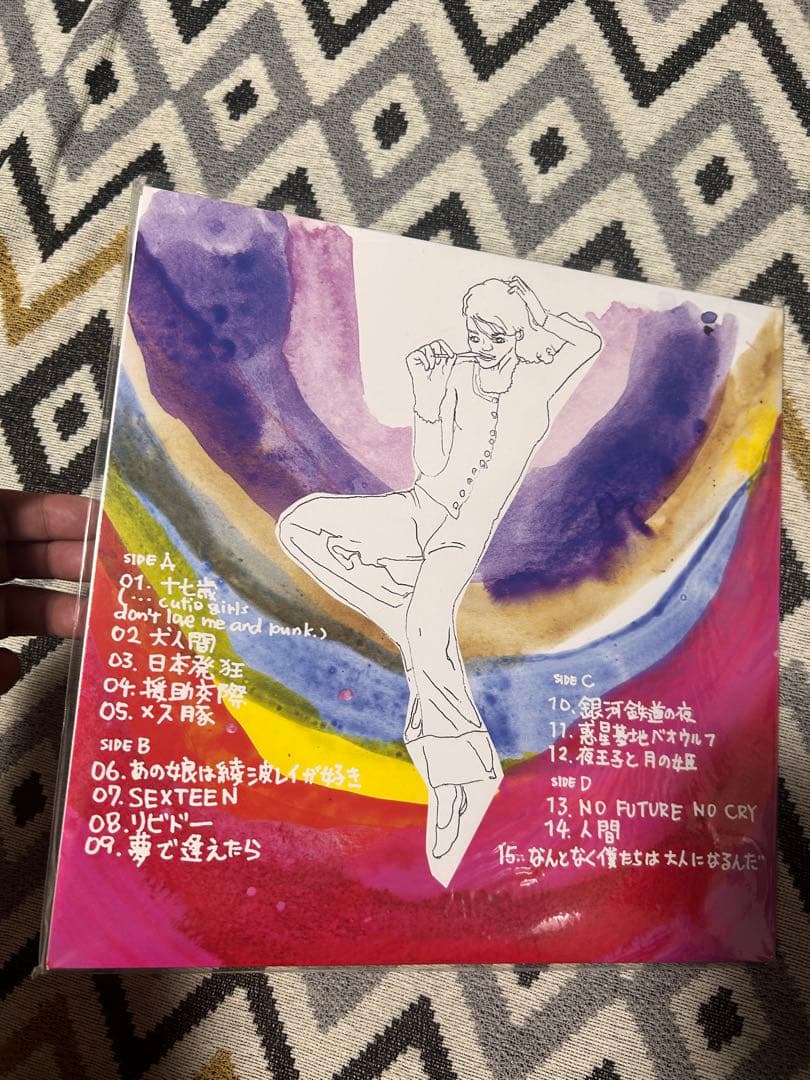 SIDE A
01. 十七歳
(... cutie girls
don't love me and punk.)
02 犬人間
03. 日本発狂
04. 援助交際
05. メス豚
SIDE B
06. あの娘は綾波レイが好き
07. SEXTEEN
08. リビドー
09. 夢で逢えたら
SIDE C
10. 銀河鉄道の夜
11. 惑星基地ベオウルフ
12. 夜王子と月の姫
SIDE D
13. NO FUTURE NO CRY
14. 人間
15. なんとなく僕たちは大人になるんだ